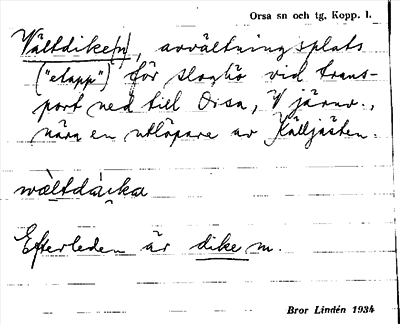 Orsa sn och tg, Kopp. l.
Vältdike[n], avvältningsplats
("etapp") för slaghö vid trans-
port ned till Orsa, V järnv.,
nära en utlöpare av Källjästen.
wàltdáika
Efterleden är dike m.
Bror Lindén 1934